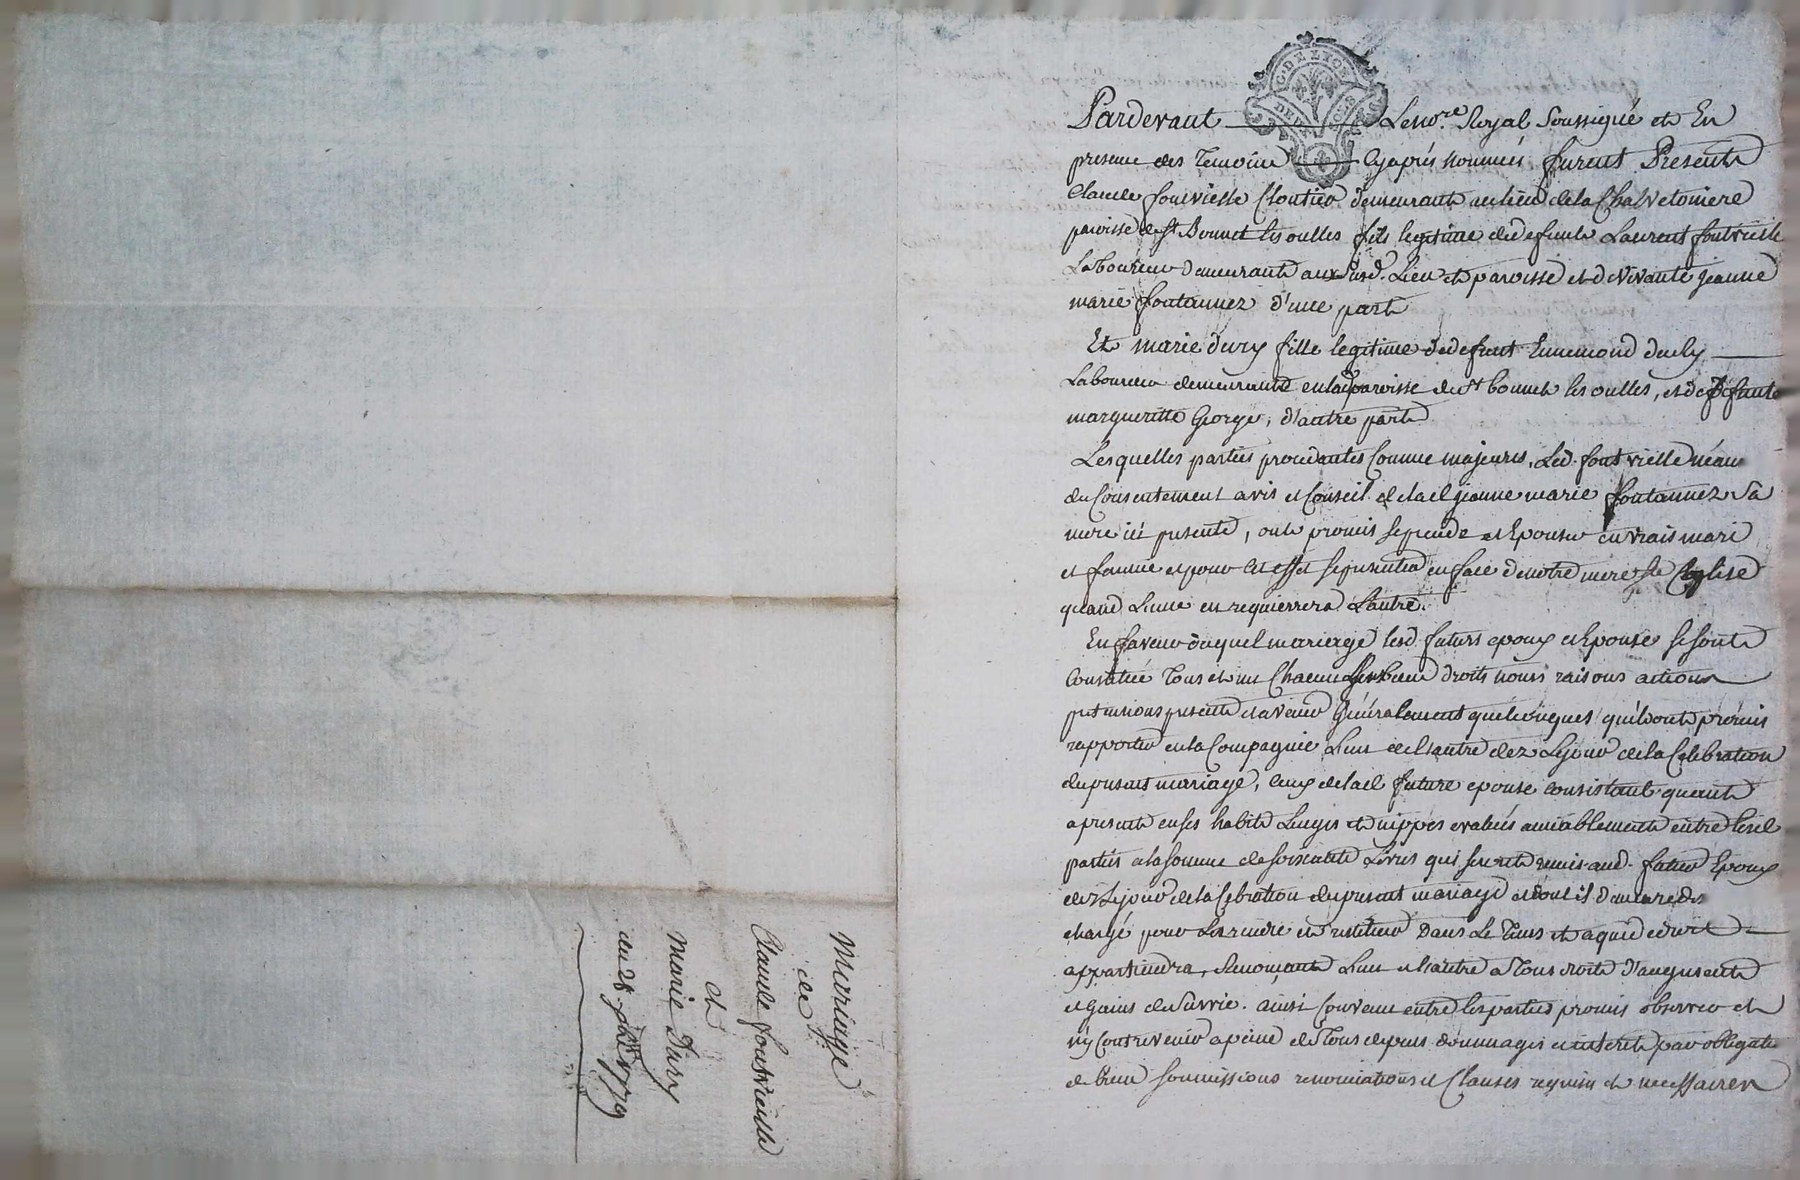 G. DE LYON
DEUX SOLS
Pardevant Le no.re Royal Soussigné et En
presence des Temoins Cyaprés nommés furent Presents
Claude fontvielle Cloutier demeurant au lieu de la Chalvetoniere
paroisse de St Bonnet les oulles fils legitime de defunt Laurent fontvielle
Laboureur demeurant aux susd. Lieu et paroisse et de vivante jeanne
marie fontannez d'une part
Et marie dury fille legitime de defunt Ennemond dury
Laboureur demeurant en lad paroisse de St bonnet les oulles, et de defunte
margueritte George, d'autre part
Lesquelles parties procedantes Comme majeures, Led. fontvielle neam
du Consentement avis et Conseil de lad jeanne marie fontannez Sa
mere ici presente, ont promis se prendre et Epouser en vrais mari
et femme et pour Cet effet se presenter en face de notre mere Ste Eglise
quand L'une en requierrera L'autre.
En faveur duquel mariage lesd. futurs epoux et Epouse se sont
Constitué Tous et un Chacun Leurs biens droits noms raisons actions
pretensions presents et avenir Généralement quelconques qu'ils ont promis
rapporter en la Compagnie L'un de l'autre dez Le jour de la Celebration
du present mariage, Ceux de lad future epouse consistant quant
a present en ses habits Linges et nippes evalués amiablement entre lesd
parties a la somme de soixante Livres qui seront remis aud. futur Epoux
dez Le jour de la Celebration du present mariage et dont il demeurera
chargé pour Les rendre et restituer Dans Le Tems et a qui de droit
appartiendra, Renonçant L'un et l'autre a Tous droits d'augment
et gains de Survie. ainsi Convenu entre les parties promis observer et
n'y Contrevenir a peine de Tous depens dommages et interets par obligation
de biens soumissions renonciations et Clauses requises et necessaires
Mariage
de
Claude fontvielle
et
Marie Dury
du 28 7bre 1779